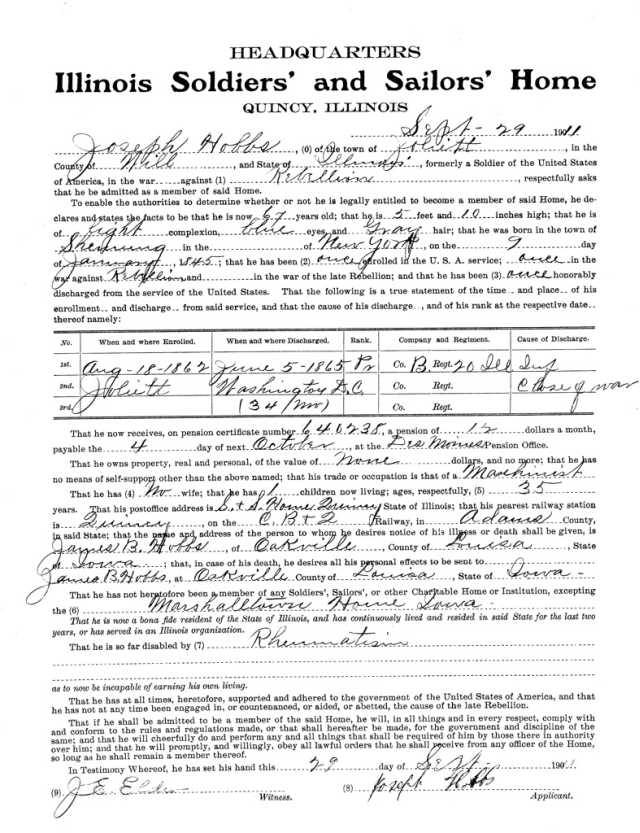 HEADQUARTERS
Illinois Soldiers' and Sailors' Home
QUINCY, ILLINOIS
Sept - 29 1911
Joseph Hobbs, (0) of the town of Joliett, in the
County of Will, and State of Illinois, formerly a Soldier of the United States
of America, in the war against (1) Rebellion, respectfully asks
that he be admitted as a member of said Home.
To enable the authorities to determine whether or not he is legally entitled to become a member of said Home, he de-
clares and states the facts to be that he is now 67 years old; that he is 5 feet and 10 inches high; that he is
of light complexion, blue eyes, and Gray hair; that he was born in the town of
in the of New York, on the 9 day
of January, 1845; that he has been (2) once enrolled in the U. S. A. service; once in the
war against Rebellion and in the war of the late Rebellion; and that he has been (3) once honorably
discharged from the service of the United States. That the following is a true statement of the time and place of his
enrollment and discharge from said service, and that the cause of his discharge, and of his rank at the respective date
thereof namely:
No. When and where Enrolled. When and where Discharged. Rank. Company and Regiment. Cause of Discharge.
1st. Aug-18-1862 June 5-1865 Pr Co. B. Regt. 20 Ill Inf
2nd. Joliett Washington D.C. Co. Regt. Close of war
3rd. (34/mo) Co. Regt.
That he now receives, on pension certificate number 640235, a pension of 12 dollars a month,
payable the 4 day of next October, at the Des Moines Pension Office.
That he owns property, real and personal, of the value of None dollars, and no more; that he has
no means of self-support other than the above named; that his trade or occupation is that of a Maschinist
That he has (4) No wife; that he has 1 children now living; ages, respectively, (5) 35
years. That his postoffice address is S. & S. Home Quincy State of Illinois; that his nearest railway station
is Quincy, on the C. B & Q Railway, in Adams County,
in said State; that the name and address of the person to whom he desires notice of his illness or death shall be given, is
James B. Hobbs, of Oakville, County of Louisa, State
of Iowa; that, in case of his death, he desires all his personal effects to be sent to
James B Hobbs, at Oakville County of Louisa, State of Iowa -
That he has not heretofore been a member of any Soldiers', Sailors', or other Charitable Home or Institution, excepting
the (6) Marshalltown Home Iowa -
That he is now a bona fide resident of the State of Illinois, and has continuously lived and resided in said State for the last two
years, or has served in an Illinois organization.
That he is so far disabled by (7) Rheumatism
as to now be incapable of earning his own living.
That he has at all times, heretofore, supported and adhered to the government of the United States of America, and that
he has not at any time been engaged in, or countenanced, or aided, or abetted, the cause of the late Rebellion.
That if he shall be admitted to be a member of the said Home, he will, in all things and in every respect, comply with
and conform to the rules and regulations made, or that shall hereafter be made, for the government and discipline of the
same; and that he will cheerfully do and perform any and all things that shall be required of him by those there in authority
over him; and that he will promptly, and willingly, obey all lawful orders that he shall receive from any officer of the Home,
so long as he shall remain a member thereof.
In Testimony Whereof, he has set his hand this 29 day of Sept - 1911
(9) J. E. Elder (8) Joseph Hobbs
Witness. Applicant.